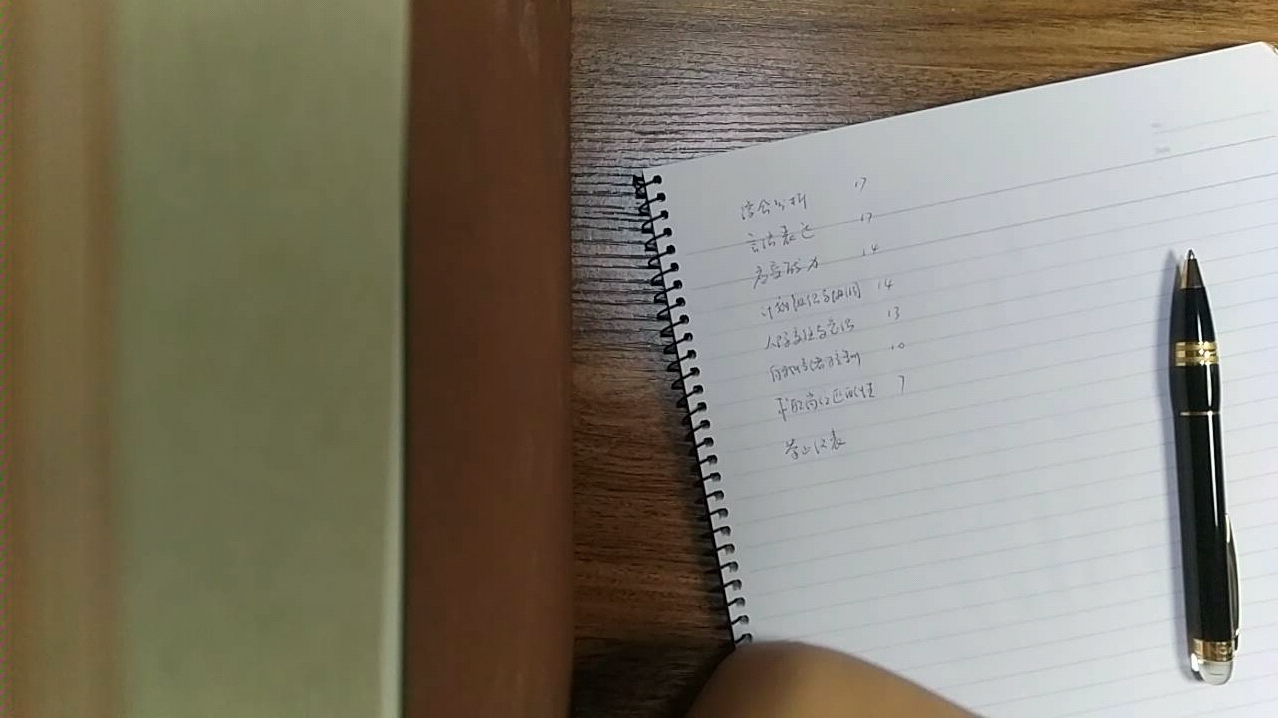 综合分析 17
言语表达 17
应变能力 14
计划组织与协调 14
人际交往与意识 13
自我情绪控制 10
求职岗位匹配性 7
举止仪表